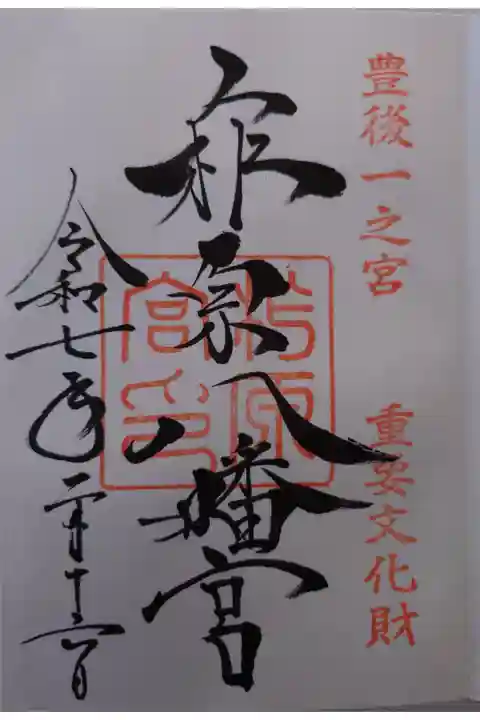 豊後一之宮
重要文化財
柞原八幡宮
柞原宮印
令和七年二月十六日